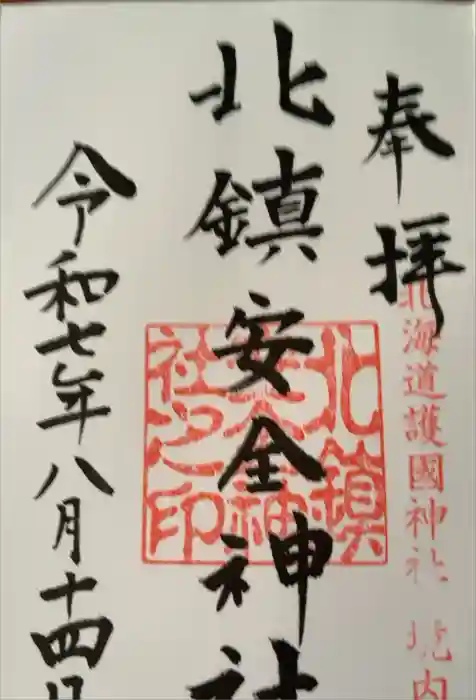 奉拝
北海道護國神社 境内
北鎮安全神社
北鎮
安全神
社之印
令和七年八月十四日